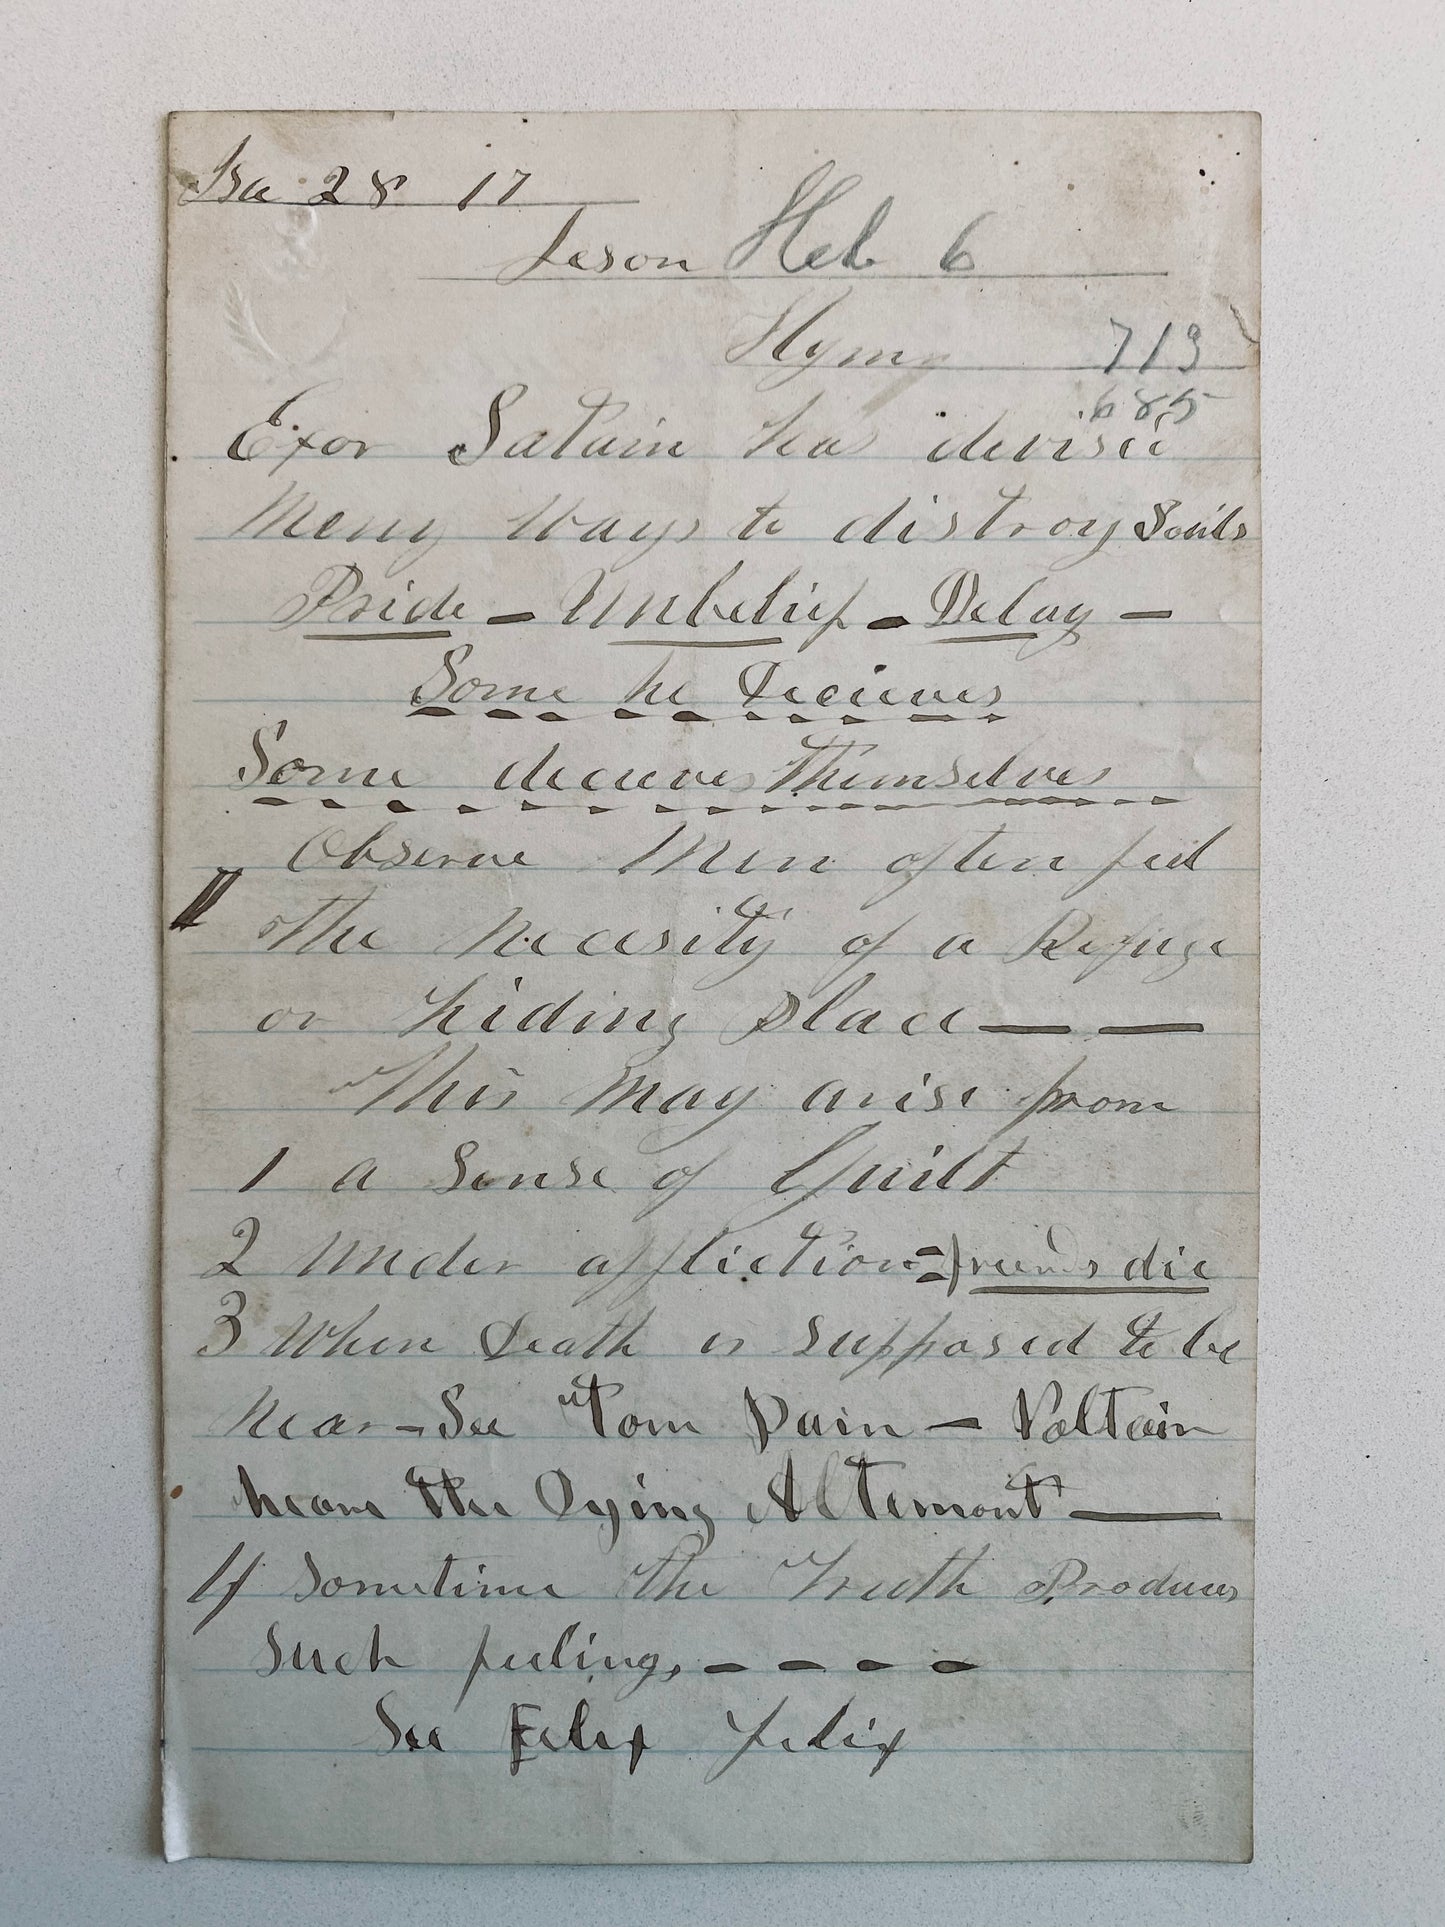 Isa 28 17
Leson Heb 6
Hymn 713
685
Exor Satain has devised
Meny ways to distroy Souls
Pride – Unbelief – Delay –
Some he Decieves
Some decieve themselves
Observe Men often feel
II the Necesity of a Refuge
or hiding place — —
This May arise from
1 a Sense of Guilt
2 Under affliction = friends die
3 When Death is supposed to be
near – See Tom Pain – Voltain
hear the Dying Altemont —
4 Sometime the Truth Produces
Such feelings – – – –
See Felix Felix